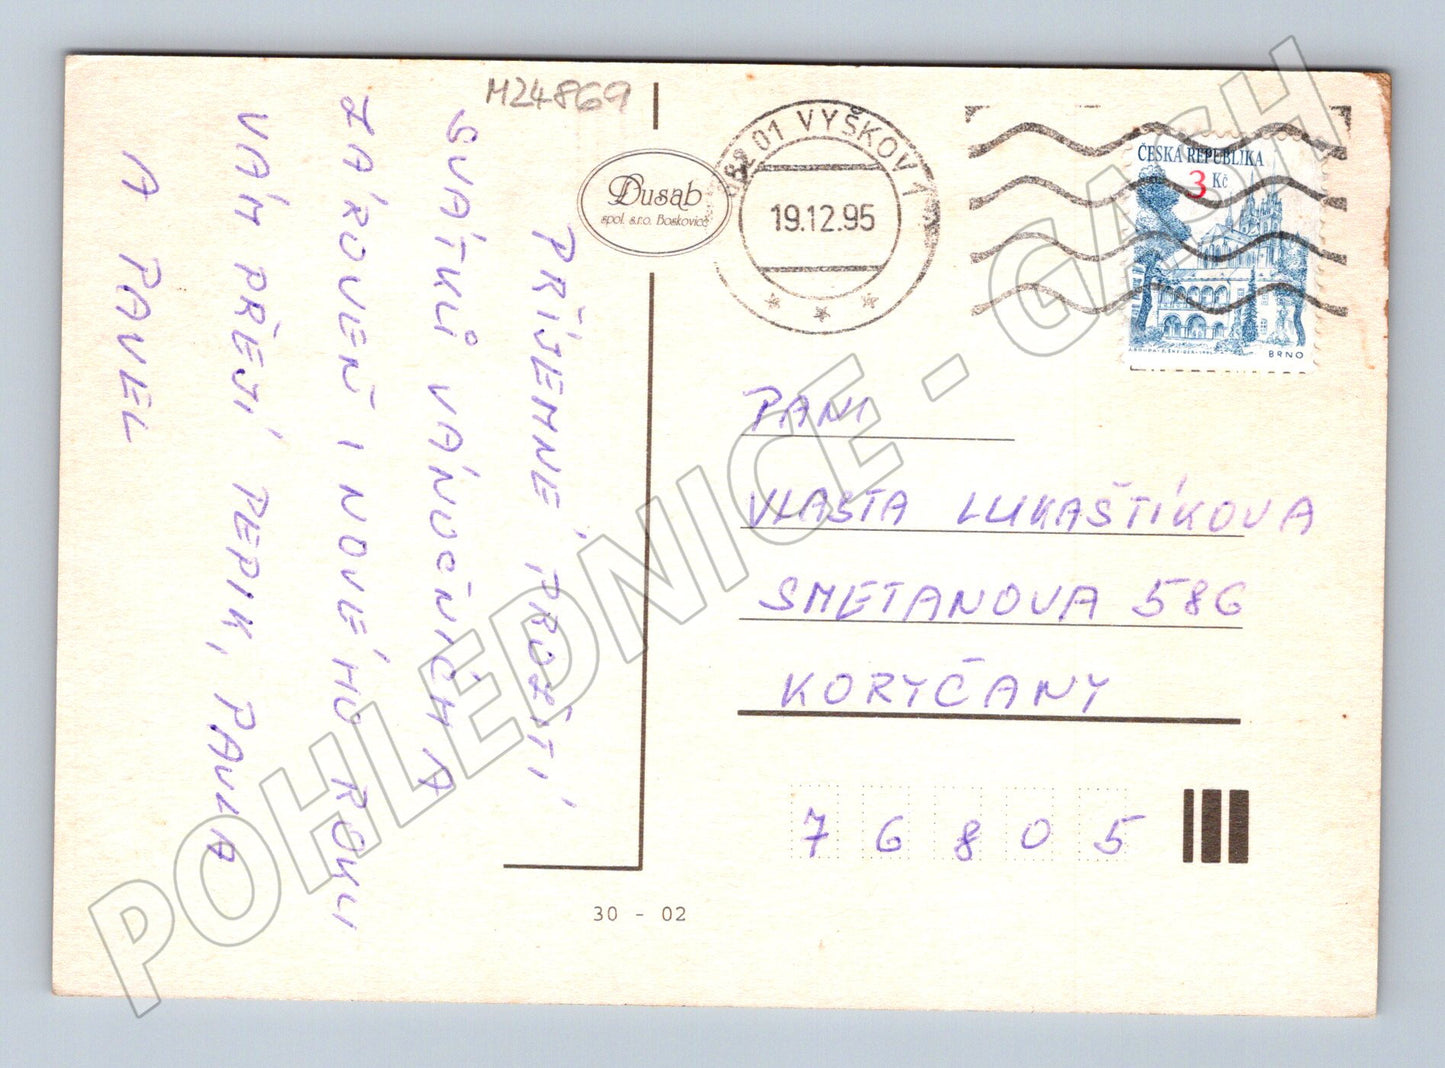 M24869
Dusab
spol. s.r.o. Boskovice
682 01 VYŠKOV 1
19.12.95
ČESKÁ REPUBLIKA
3 Kč
BRNO
PŘÍJEMNÉ PROŽITÍ
SVÁTKŮ VÁNOČNÍCH A
ZÁROVEŇ I NOVÉHO ROKU
VÁM PŘEJÍ PEPIK, PAVLA
A PAVEL
PANI
VLASTA LUKAŠTÍKOVA
SMETANOVA 586
KORYČANY
76805
30 - 02
POHLEDNICE - GASH